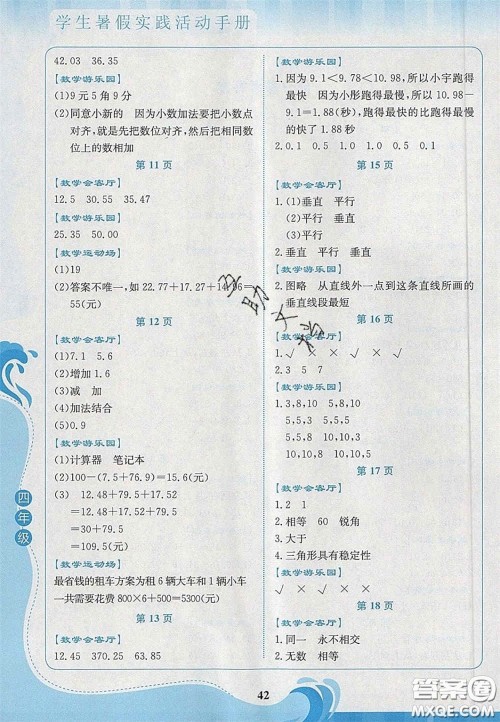 学生暑假实践活动手册
42.03 36.35
【数学游乐园】
(1)9元5角9分
(2)同意小新的 因为小数加法要把小数点
对齐,就是先把数位对齐,然后把相同数
位上的数相加
第11页
【数学会客厅】
12.5 30.55 35.47
【数学游乐园】
25.35 50.00
【数学运动场】
(1)19
(2)答案不唯一,如22.77+17.27+14.96=
55(元)
第12页
【数学会客厅】
(1)7.1 5.6
(2)增加1.6
(3)减 加
(4)加法结合
(5)0.9
【数学游乐园】
(1)计算器 笔记本
(2)100-(7.5+76.9)=15.6(元)
(3) 12.48+79.5+17.52
=12.48+17.52+79.5
=30+79.5
=109.5(元)
【数学运动场】
最省钱的租车方案为租6辆大车和1辆小车
一共需要花费800×6+500=5300(元)
第13页
【数学会客厅】
12.45 370.25 63.85
【数学游乐园】
1.因为9.1<9.78<10.98,所以小宇跑得
最快 因为小彤跑得最慢,所以10.98-
9.1=1.88(秒),跑得最快的比跑得最慢
的快了1.88秒
2.0.1 0.5 1.0 0.5 0.1
第15页
【数学会客厅】
1.(1)垂直 平行
(2)平行 垂直
(3)平行
2.垂直 平行 垂直
【数学游乐园】
2.图略 从直线外一点到这条直线所画的
垂直线段最短
第16页
【数学会客厅】
1.√ √ × × √ ×
2.3 5 7
【数学游乐园】
1.3,8,10 3,5,10 5,8,10
5,5,3 5,5,5
5,3,8 5,3,10
3,3,5
第17页
【数学会客厅】
1.2 1
2.相等 60 锐角
3.大于
4.三角形具有稳定性
【数学游乐园】
√ × √ × ×
第18页
【数学会客厅】
1.同一 永不相交
2.无数 相等
四年级
42
答案圈
MXQE.COM